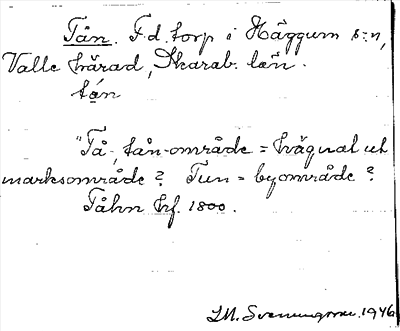 Tån. F.d. torp i Häggum s:n,
Valle härad, Skarab. län.
tån
"Tå-, tån-område = hägnat ut
marksområde? Tun = byområde?
Tåhn hf. 1800.
1946